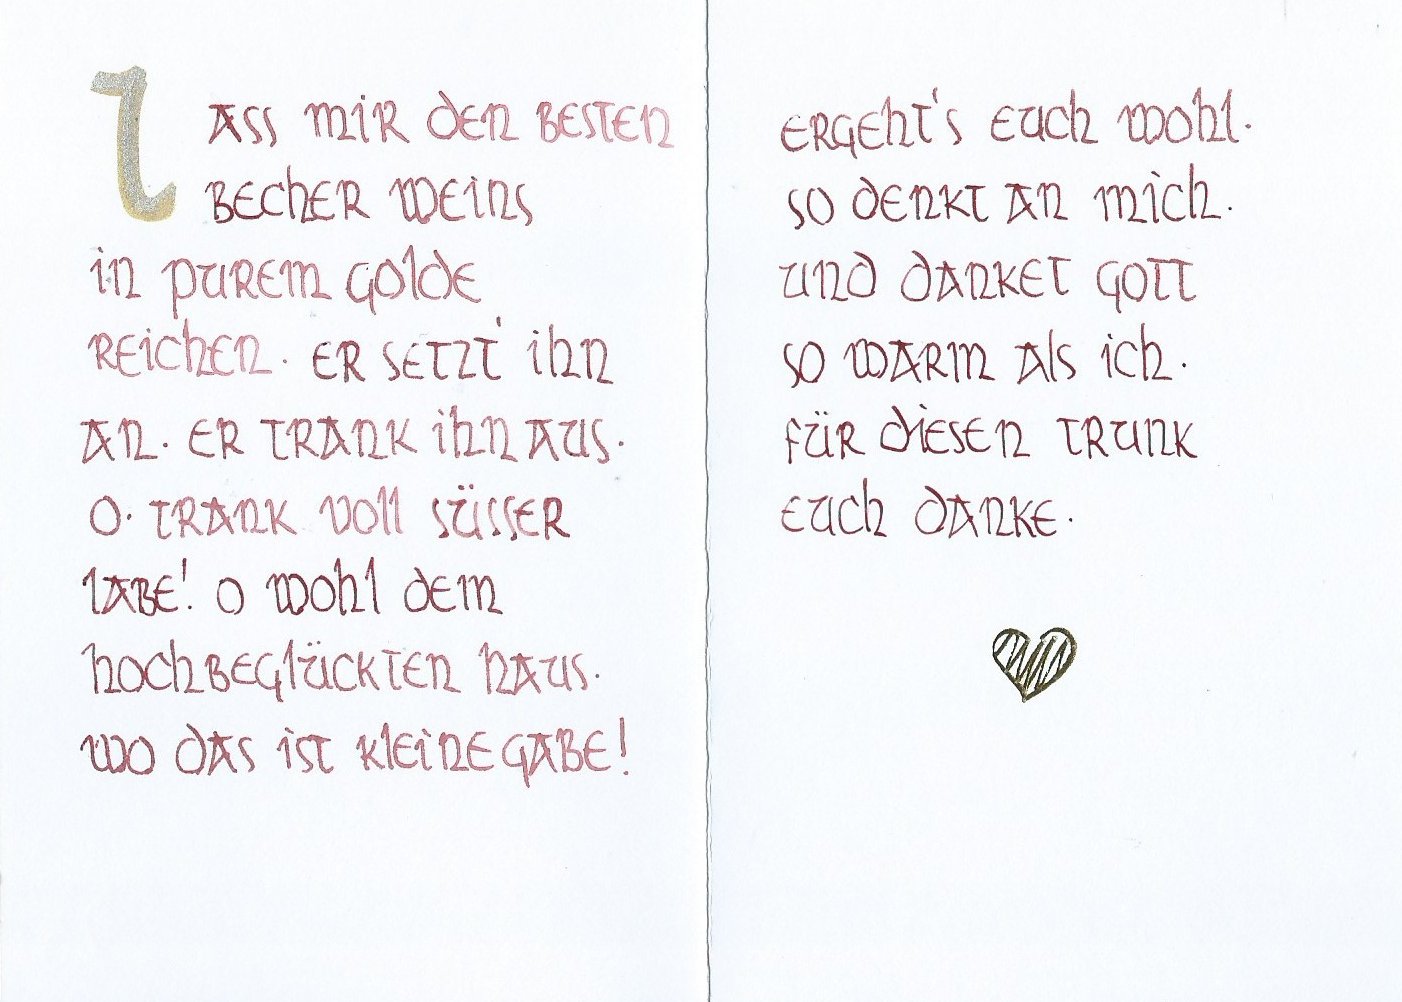 lass mir den besten
becher weins
in purem golde
reichen. er setzt' ihn
an. er trank ihn aus.
o. trank voll süsser
labe! o wohl dem
hochbeglückten haus.
wo das ist kleine gabe!
ergeht's euch wohl.
so denkt an mich.
und danket gott
so warm als ich.
für diesen trunk
euch danke.